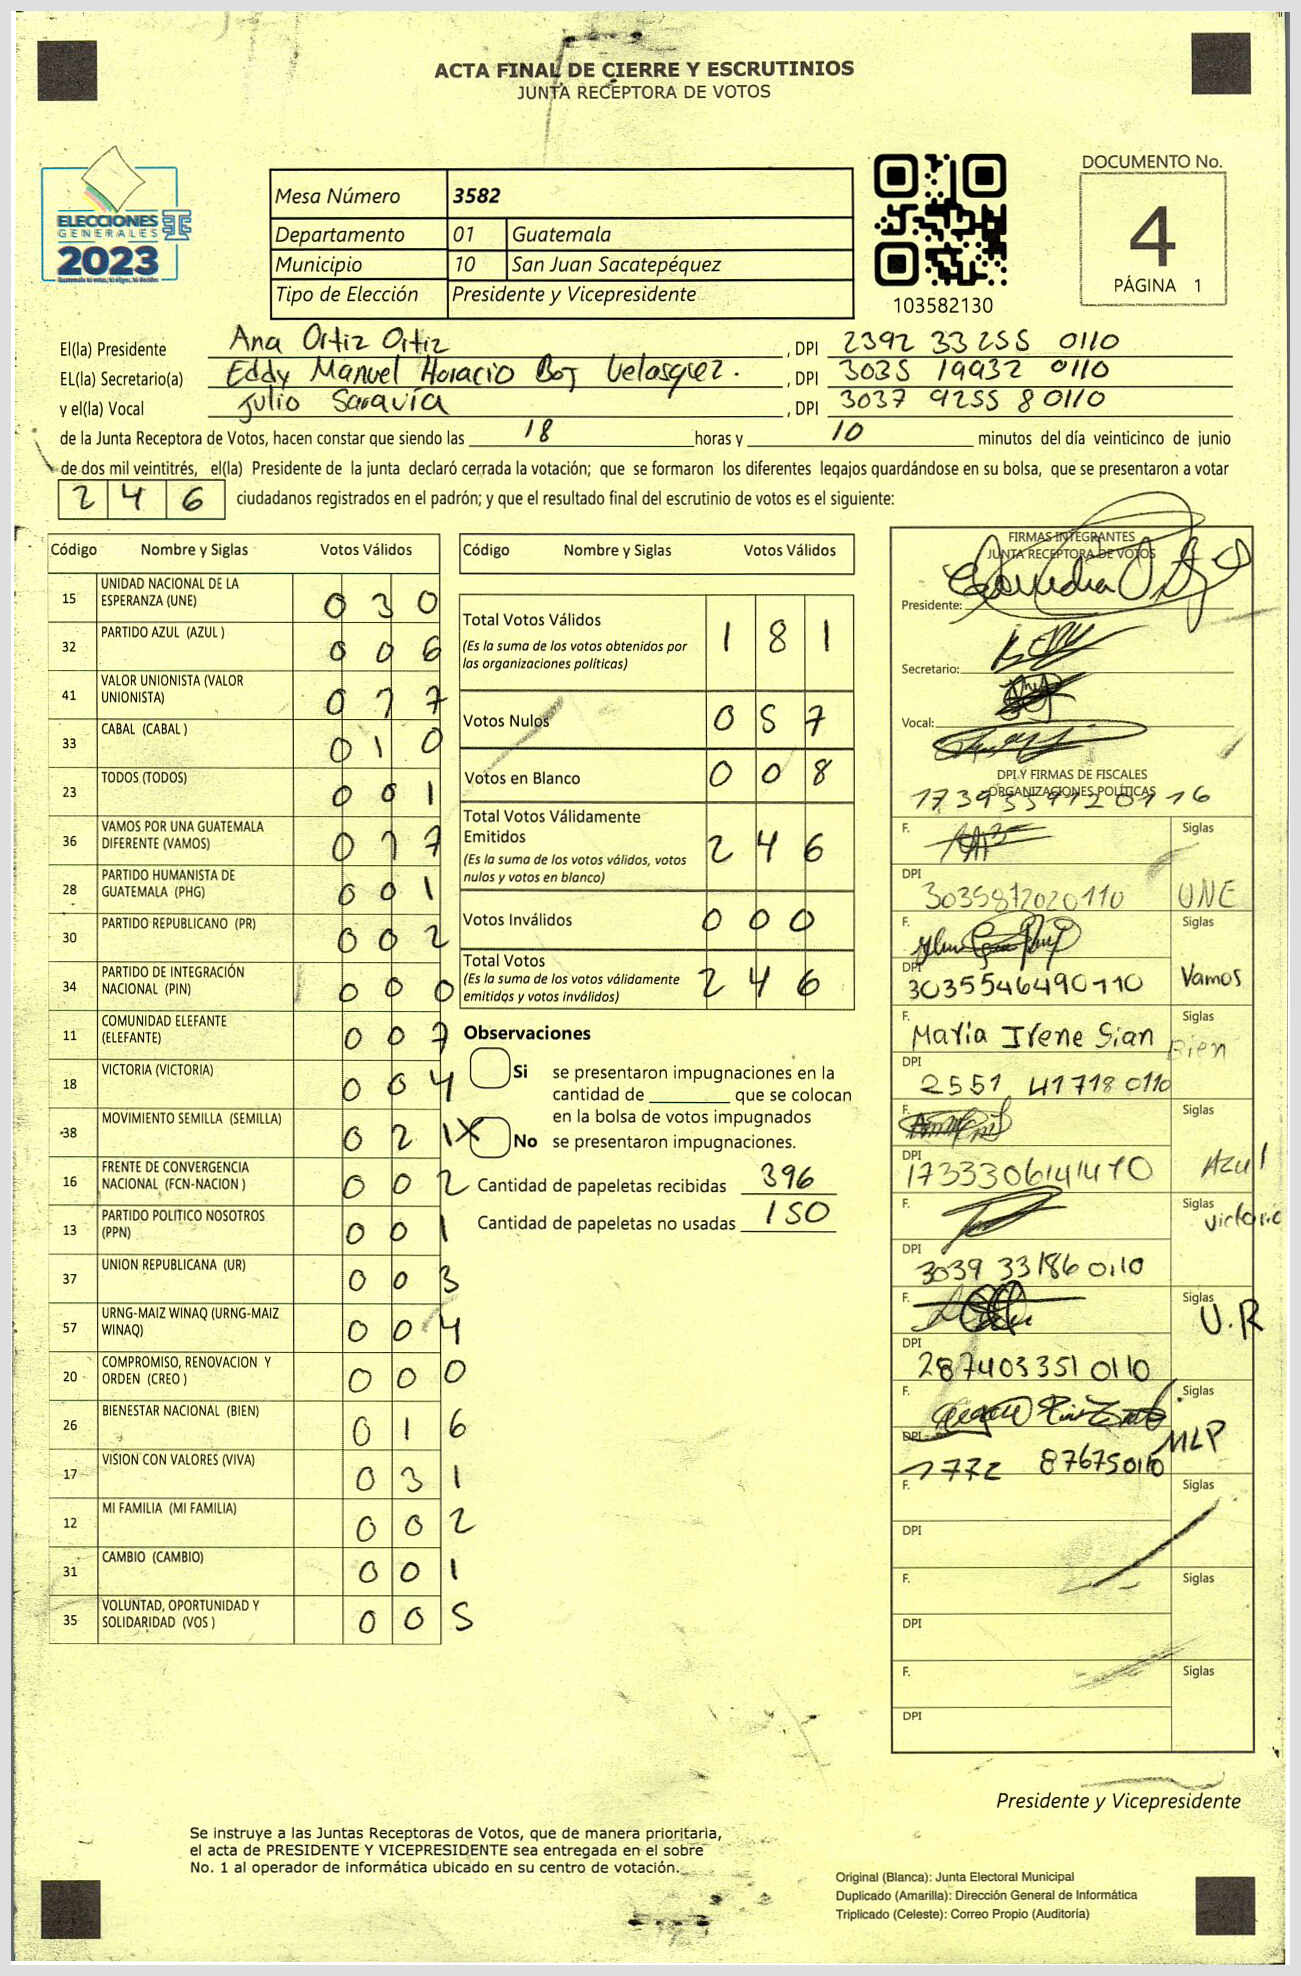 ACTA FINAL DE CIERRE Y ESCRUTINIOS
JUNTA RECEPTORA DE VOTOS
ELECCIONES
GENERALES
2023
Mesa Número 3582
Departamento 01 Guatemala
Municipio 10 San Juan Sacatepéquez
Tipo de Elección Presidente y Vicepresidente
103582130
DOCUMENTO No.
4
PÁGINA 1
El(la) Presidente Ana Ortiz Ortiz, DPI 2392 33255 0110
EL(la) Secretario(a) Eddy Manuel Horacio Boj Velasquez., DPI 3035 19932 0110
y el(la) Vocal Julio Saravia, DPI 3037 9255 8 0110
de la Junta Receptora de Votos, hacen constar que siendo las 18 horas y 10 minutos del día veinticinco de junio
de dos mil veintitrés, el(la) Presidente de la junta declaró cerrada la votación; que se formaron los diferentes legajos guardándose en su bolsa, que se presentaron a votar
246 ciudadanos registrados en el padrón; y que el resultado final del escrutinio de votos es el siguiente:
Código Nombre y Siglas Votos Válidos
15 UNIDAD NACIONAL DE LA ESPERANZA (UNE) 0 3 0
32 PARTIDO AZUL (AZUL ) 0 0 6
41 VALOR UNIONISTA (VALOR UNIONISTA) 0 1 7
33 CABAL (CABAL ) 0 1 0
23 TODOS (TODOS) 0 0 1
36 VAMOS POR UNA GUATEMALA DIFERENTE (VAMOS) 0 1 7
28 PARTIDO HUMANISTA DE GUATEMALA (PHG) 0 0 1
30 PARTIDO REPUBLICANO (PR) 0 0 2
34 PARTIDO DE INTEGRACIÓN NACIONAL (PIN) 0 0 0
11 COMUNIDAD ELEFANTE (ELEFANTE) 0 0 7
18 VICTORIA (VICTORIA) 0 0 4
38 MOVIMIENTO SEMILLA (SEMILLA) 0 2 1
16 FRENTE DE CONVERGENCIA NACIONAL (FCN-NACION ) 0 0 2
13 PARTIDO POLITICO NOSOTROS (PPN) 0 0 1
37 UNION REPUBLICANA (UR) 0 0 3
57 URNG-MAIZ WINAQ (URNG-MAIZ WINAQ) 0 0 4
20 COMPROMISO, RENOVACION Y ORDEN (CREO ) 0 0 0
26 BIENESTAR NACIONAL (BIEN) 0 1 6
17 VISION CON VALORES (VIVA) 0 3 1
12 MI FAMILIA (MI FAMILIA) 0 0 2
31 CAMBIO (CAMBIO) 0 0 1
35 VOLUNTAD, OPORTUNIDAD Y SOLIDARIDAD (VOS ) 0 0 5
Código Nombre y Siglas Votos Válidos
Total Votos Válidos 1 8 1
(Es la suma de los votos obtenidos por
las organizaciones políticas)
Votos Nulos 0 5 7
Votos en Blanco 0 0 8
Total Votos Válidamente
Emitidos 2 4 6
(Es la suma de los votos válidos, votos
nulos y votos en blanco)
Votos Inválidos 0 0 0
Total Votos 2 4 6
(Es la suma de los votos válidamente
emitidos y votos inválidos)
Observaciones
Si se presentaron impugnaciones en la
cantidad de ________ que se colocan
en la bolsa de votos impugnados
X No se presentaron impugnaciones.
Cantidad de papeletas recibidas 396
Cantidad de papeletas no usadas 150
FIRMAS INTEGRANTES
JUNTA RECEPTORA DE VOTOS
Presidente:
Secretario:
Vocal:
DPI Y FIRMAS DE FISCALES
ORGANIZACIONES POLÍTICAS
F. Siglas
DPI 3035872020110 UNE
F. Siglas
DPI 3035546490110 Vamos
F. Maria Irene Sian Siglas Bien
DPI 2551 41718 0110
F. Siglas
DPI 1733306141410 Azul
F. Siglas victoria
DPI 3039 33186 0110
F. Siglas U.R
DPI 287403351 0110
F. Siglas
DPI 1772 876750110 MLP
F. Siglas
DPI
F. Siglas
DPI
F. Siglas
DPI
Presidente y Vicepresidente
Se instruye a las Juntas Receptoras de Votos, que de manera prioritaria,
el acta de PRESIDENTE Y VICEPRESIDENTE sea entregada en el sobre
No. 1 al operador de informática ubicado en su centro de votación.
Original (Blanca): Junta Electoral Municipal
Duplicado (Amarilla): Dirección General de Informática
Triplicado (Celeste): Correo Propio (Auditoría)